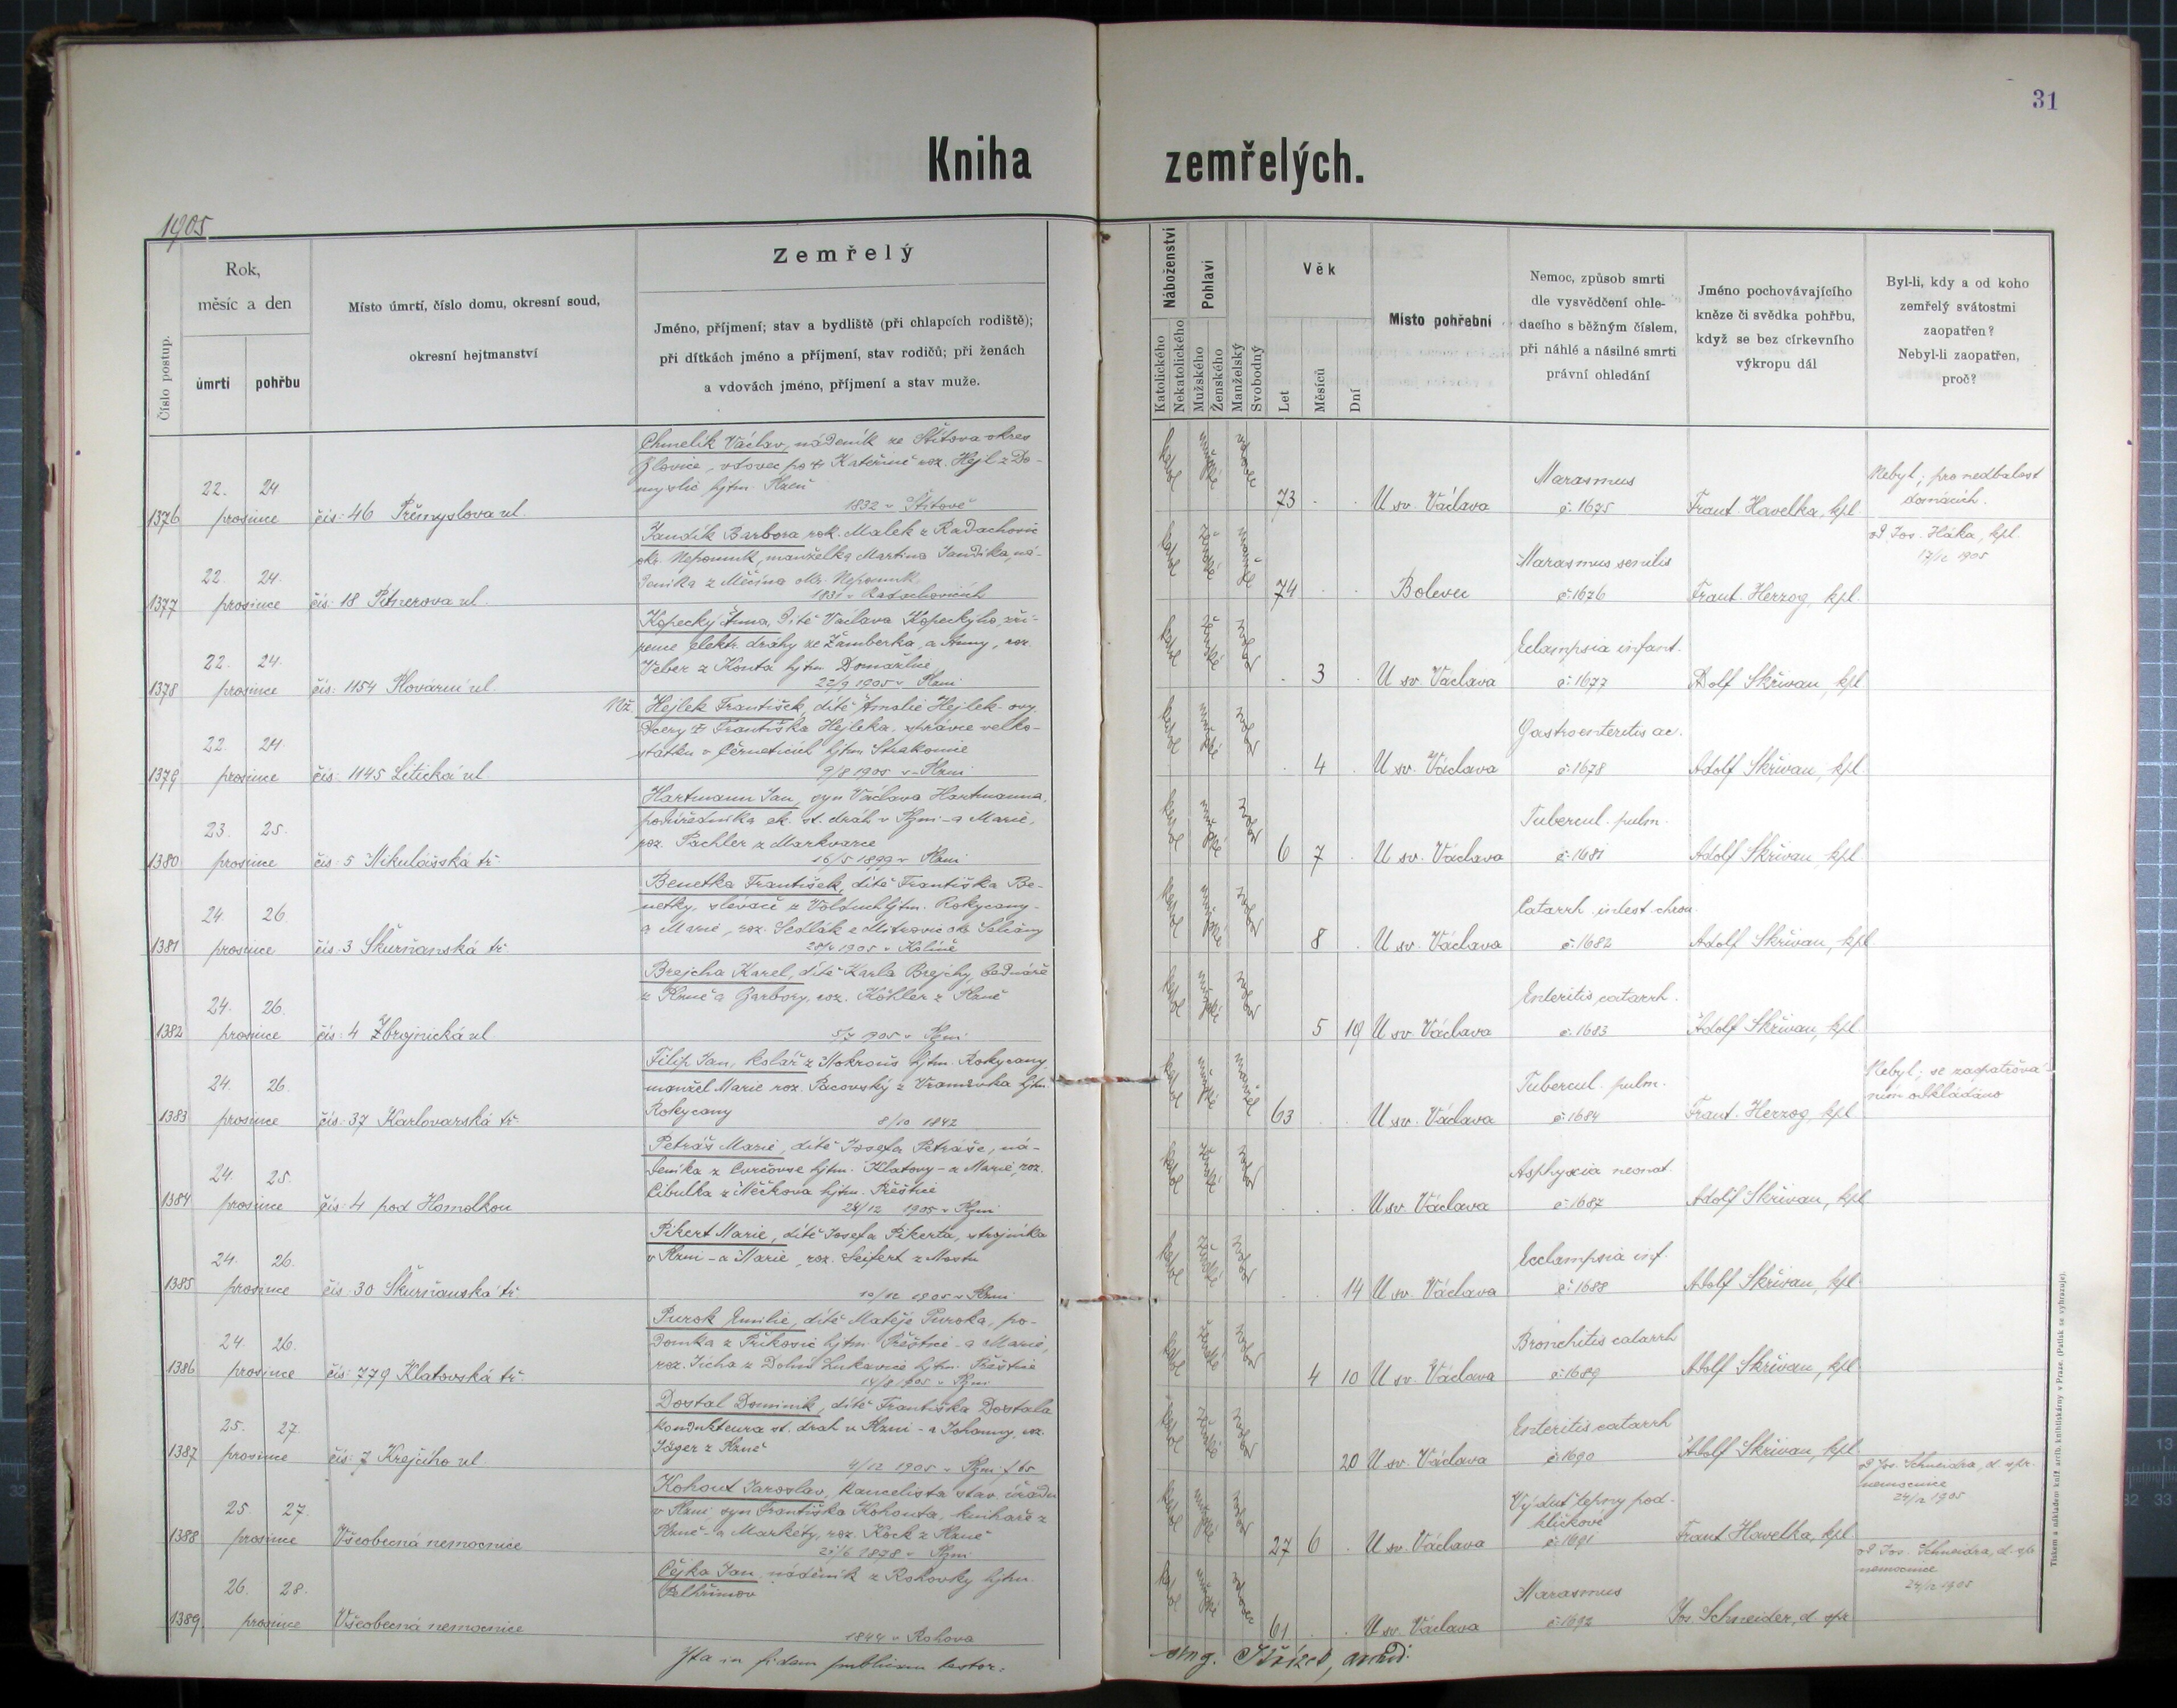 31
Kniha zemřelých.
1905
Číslo postup.
Rok,
měsíc a den
úmrtí
pohřbu
Místo úmrtí, číslo domu, okresní soud,
okresní hejtmanství
Zemřelý
Jméno, příjmení; stav a bydliště (při chlapcích rodiště);
při dítkách jméno a příjmení, stav rodičů; při ženách
a vdovách jméno, příjmení a stav muže.
Náboženství
Katolického
Nekatolického
Pohlaví
Mužského
Ženského
Manželský
Svobodný
Věk
Let
Měsíců
Dní
Místo pohřební
Nemoc, způsob smrti
dle vysvědčení ohle-
dacího s běžným číslem,
při náhlé a násilné smrti
právní ohledání
Jméno pochovávajícího
kněze či svědka pohřbu,
když se bez církevního
výkropu dál
Byl-li, kdy a od koho
zemřelý svátostmi
zaopatřen?
Nebyl-li zaopatřen,
proč?
1376
22. 24.
prosince
čís: 46 Přemyslova ul.
Chmelík Václav, nádeník ze Štítova okres
Blovice, vdovec po † Kateřině roz. Hejl z Do-
myslic hjtm. Plzeň
1832 v Štítově
73
U sv. Václava
Marasmus
č. 1675
Frant. Havelka, kpl
Nebyl; pro nedbalost
domácích.
1377
22. 24.
prosince
čís: 18 Petnerova ul.
Jandík Barbora roz. Malek z Radachovic
okr. Nepomuk, manželka Martina Jandíka, ná-
deníka z Měčína okr. Nepomuk.
1831 v Radochovicích
74
Bolevec
Marasmus senilis
č. 1676
Frant. Herzog, kpl.
od Jos. Háka, kpl.
17/12 1905
1378
22. 24.
prosince
čís: 1154 Plovární ul.
Kopecký Anna, dítě Václava Kopeckýho, zří-
zence elektr. dráhy ze Žamberka, a Anny, roz.
Veber z Kouta hjtm. Domažlice
22/9 1905 v Plzni
3
U sv. Václava
Eclampsia infant.
č. 1677
Adolf Skřivan, kpl
1379
22. 24.
prosince
čís: 1145 Litická ul
Nž. Hejlek František, dítě Amalie Hejlek-ovy
dcery † Františka Hejleka, správce velko-
statku v Černěticích hjtm. Strakonice
9/8 1905 v Plzni
4
U sv. Václava
Gastroenteritis ac.
č. 1678
Adolf Skřivan, kpl
1380
23. 25.
prosince
čís: 5 Mikulášská tř.
Hartmann Jan, syn Václava Hartmanna,
podúředníka ck. st. dráh v Plzni - a Marie,
roz. Pachler z Markvarce
16/5 1899 v Plzni
6 7
U sv. Václava
Tubercul. pulm.
č. 1681
Adolf Skřivan, kpl
1381
24. 26.
prosince
čís: 3 Škurňanská tř.
Benetka František, dítě Františka Be-
netky, slevače z Volduch hjtm. Rokycany -
a Marie, roz. Sedlák z Mitrovic okr. Selčany
1905 v Kolíně
8
U sv. Václava
Catarrh. intest. chron.
č. 1682
Adolf Skřivan, kpl
1382
24. 26.
prosince
čís: 4 Zbrojnická ul
Brejcha Karel, dítě Karla Brejchy, bednáře
z Plzně a Barbory, roz. Köhler z Plzně
5/7 1905 v Plzni
5 19
U sv. Václava
Enteritis catarrh.
č. 1683
Adolf Skřivan, kpl
1383
24. 26.
prosince
čís: 37 Karlovarská tř.
Filip Jan, kolář z Mokrouš hjtm. Rokycany
manžel Marie roz. Pacovský z Vranovka hjtm.
Rokycany
8/10 1842
63
U sv. Václava
Tubercul. pulm.
č. 1684
Frant. Herzog, kpl
Nebyl; se zaopatřová-
ním odkládáno
1384
24. 25.
prosince
čís: 4 pod Homolkou
Petráš Marie, dítě Josefa Petráše, ná-
deníka z Curčovse hjtm. Klatovy - a Marie, roz.
Cibulka z Měčkova hjtm. Přeštice
24/12 1905 v Plzni
U sv. Václava
Asphyxia neonat.
č. 1687
Adolf Skřivan, kpl
1385
24. 26.
prosince
čís: 30 Škurňanská tř.
Pikert Marie, dítě Josefa Pikerta, strojníka
v Plzni - a Marie, roz. Seifert z Mostu
10/12 1905 v Plzni
14
U sv. Václava
Ecclampsia inf.
č. 1688
Adolf Skřivan, kpl
1386
24. 26.
prosince
čís: 779 Klatovská tř.
Purok Emilie, dítě Matěje Puroka, po-
domka z Příkosic hjtm. Přeštice - a Marie,
roz. Jícha z Dolní Lukavice hjtm. Přeštice
14/8 1905 v Plzni
4 10
U sv. Václava
Bronchitis catarrh
č. 1689
Adolf Skřivan, kpl
1387
25. 27.
prosince
čís: 7 Krejčího ul
Dostal Dominik, dítě Františka Dostala
kondukteura st. drah v Plzni - a Johanny, roz.
Jäger z Plzně
4/12 1905 v Plzni
20
U sv. Václava
Enteritis catarrh
č. 1690
Adolf Skřivan, kpl
1388
25. 27.
prosince
Všeobecná nemocnice
Kohout Jaroslav, kancelista stav. úřadu
v Plzni syn Františka Kohouta, knihaře z
Plzně - a Markéty, roz. Kock z Plzně
21/6 1878 v Plzni
27 6
U sv. Václava
Výduť tepny pod-
kličkové
č. 1691
Frant Havelka, kpl.
od Jos. Schneidra, d. spr.
nemocnice
24/12 1905
1389.
26. 28.
prosince
Všeobecná nemocnice
Čejka Jan, nádeník z Rohovky hjtm.
Pelhřimov
1844 v Rohova
61
U sv. Václava
Marasmus
č. 1692
Jos. Schneider, d. spr
od Jos. Schneidra, d. spr
nemocnice
24/12 1905
Ita in fidem publicam testor:
Tiskem a nákladem kníž. arcib. knihtiskárny v Praze. (Patisk se vyhrazuje).